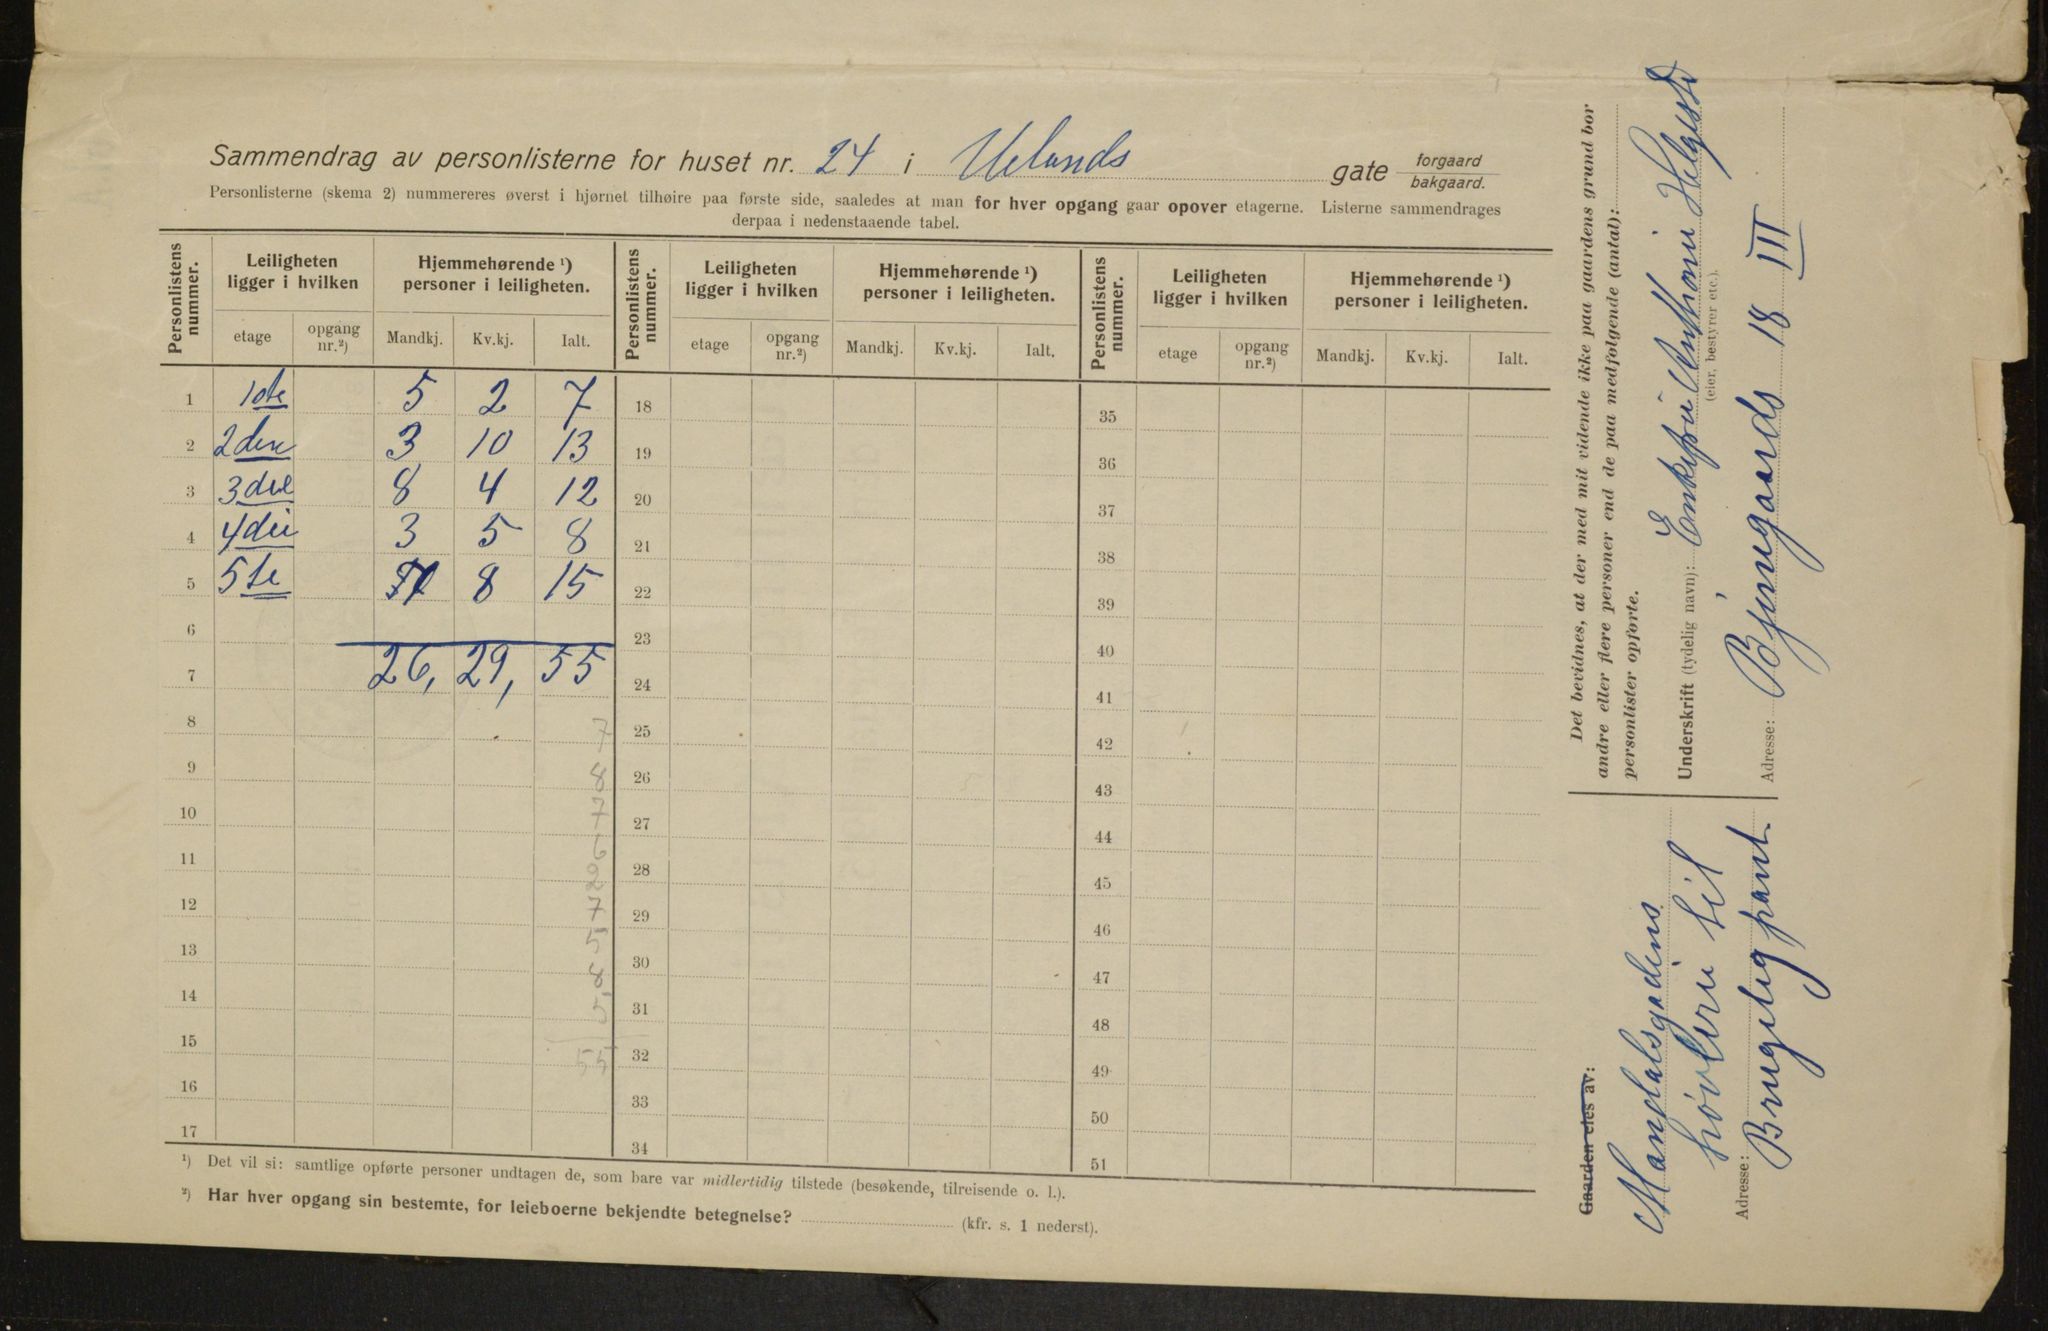 Sammendrag av personlisterne for huset nr. 24 i Uelands gate forgaard bakgaard.
Personlisterne (skema 2) nummereres øverst i hjørnet tilhøire paa første side, saaledes at man for hver opgang gaar opover etagerne. Listerne sammendrages
derpaa i nedenstaaende tabel.
Personlistens nummer. Leiligheten ligger i hvilken Hjemmehørende ¹) personer i leiligheten. Personlistens nummer. Leiligheten ligger i hvilken Hjemmehørende ¹) personer i leiligheten. Personlistens nummer. Leiligheten ligger i hvilken Hjemmehørende ¹) personer i leiligheten.
etage opgang nr.²) Mandkj. Kv.kj. Ialt. etage opgang nr.²) Mandkj. Kv.kj. Ialt. etage opgang nr.²) Mandkj. Kv.kj. Ialt.
1 1ste 5 2 7 18 35
2 2den 3 10 13 19 36
3 3die 8 4 12 20 37
4 4die 3 5 8 21 38
5 5te 8 15 22 39
6 23 40
7 26, 29, 55 24 41
8 7 25 42
9 8 26 43
10 7 27 44
11 6 28 45
12 7 29 46
13 5 30 47
14 8 31 48
15 55 32 49
16 33 50
17 34 51
¹) Det vil si: samtlige opførte personer undtagen de, som bare var midlertidig tilstede (besøkende, tilreisende o. l.).
²) Har hver opgang sin bestemte, for leieboerne bekjendte betegnelse? (kfr. s. 1 nederst).
Det bevidnes, at der med mit vidende ikke paa gaardens grund bor
andre eller flere personer end de paa medfølgende (antal):
personlister opførte.
Underskrift (tydelig navn): Enkefru Anthoni Helgesta
(eier, bestyrer etc.).
Adresse: Bjerregaards 18 III
Gaarden eies av:
Mandalsgadens
høvleri til
Adresse: Brugelig pant.